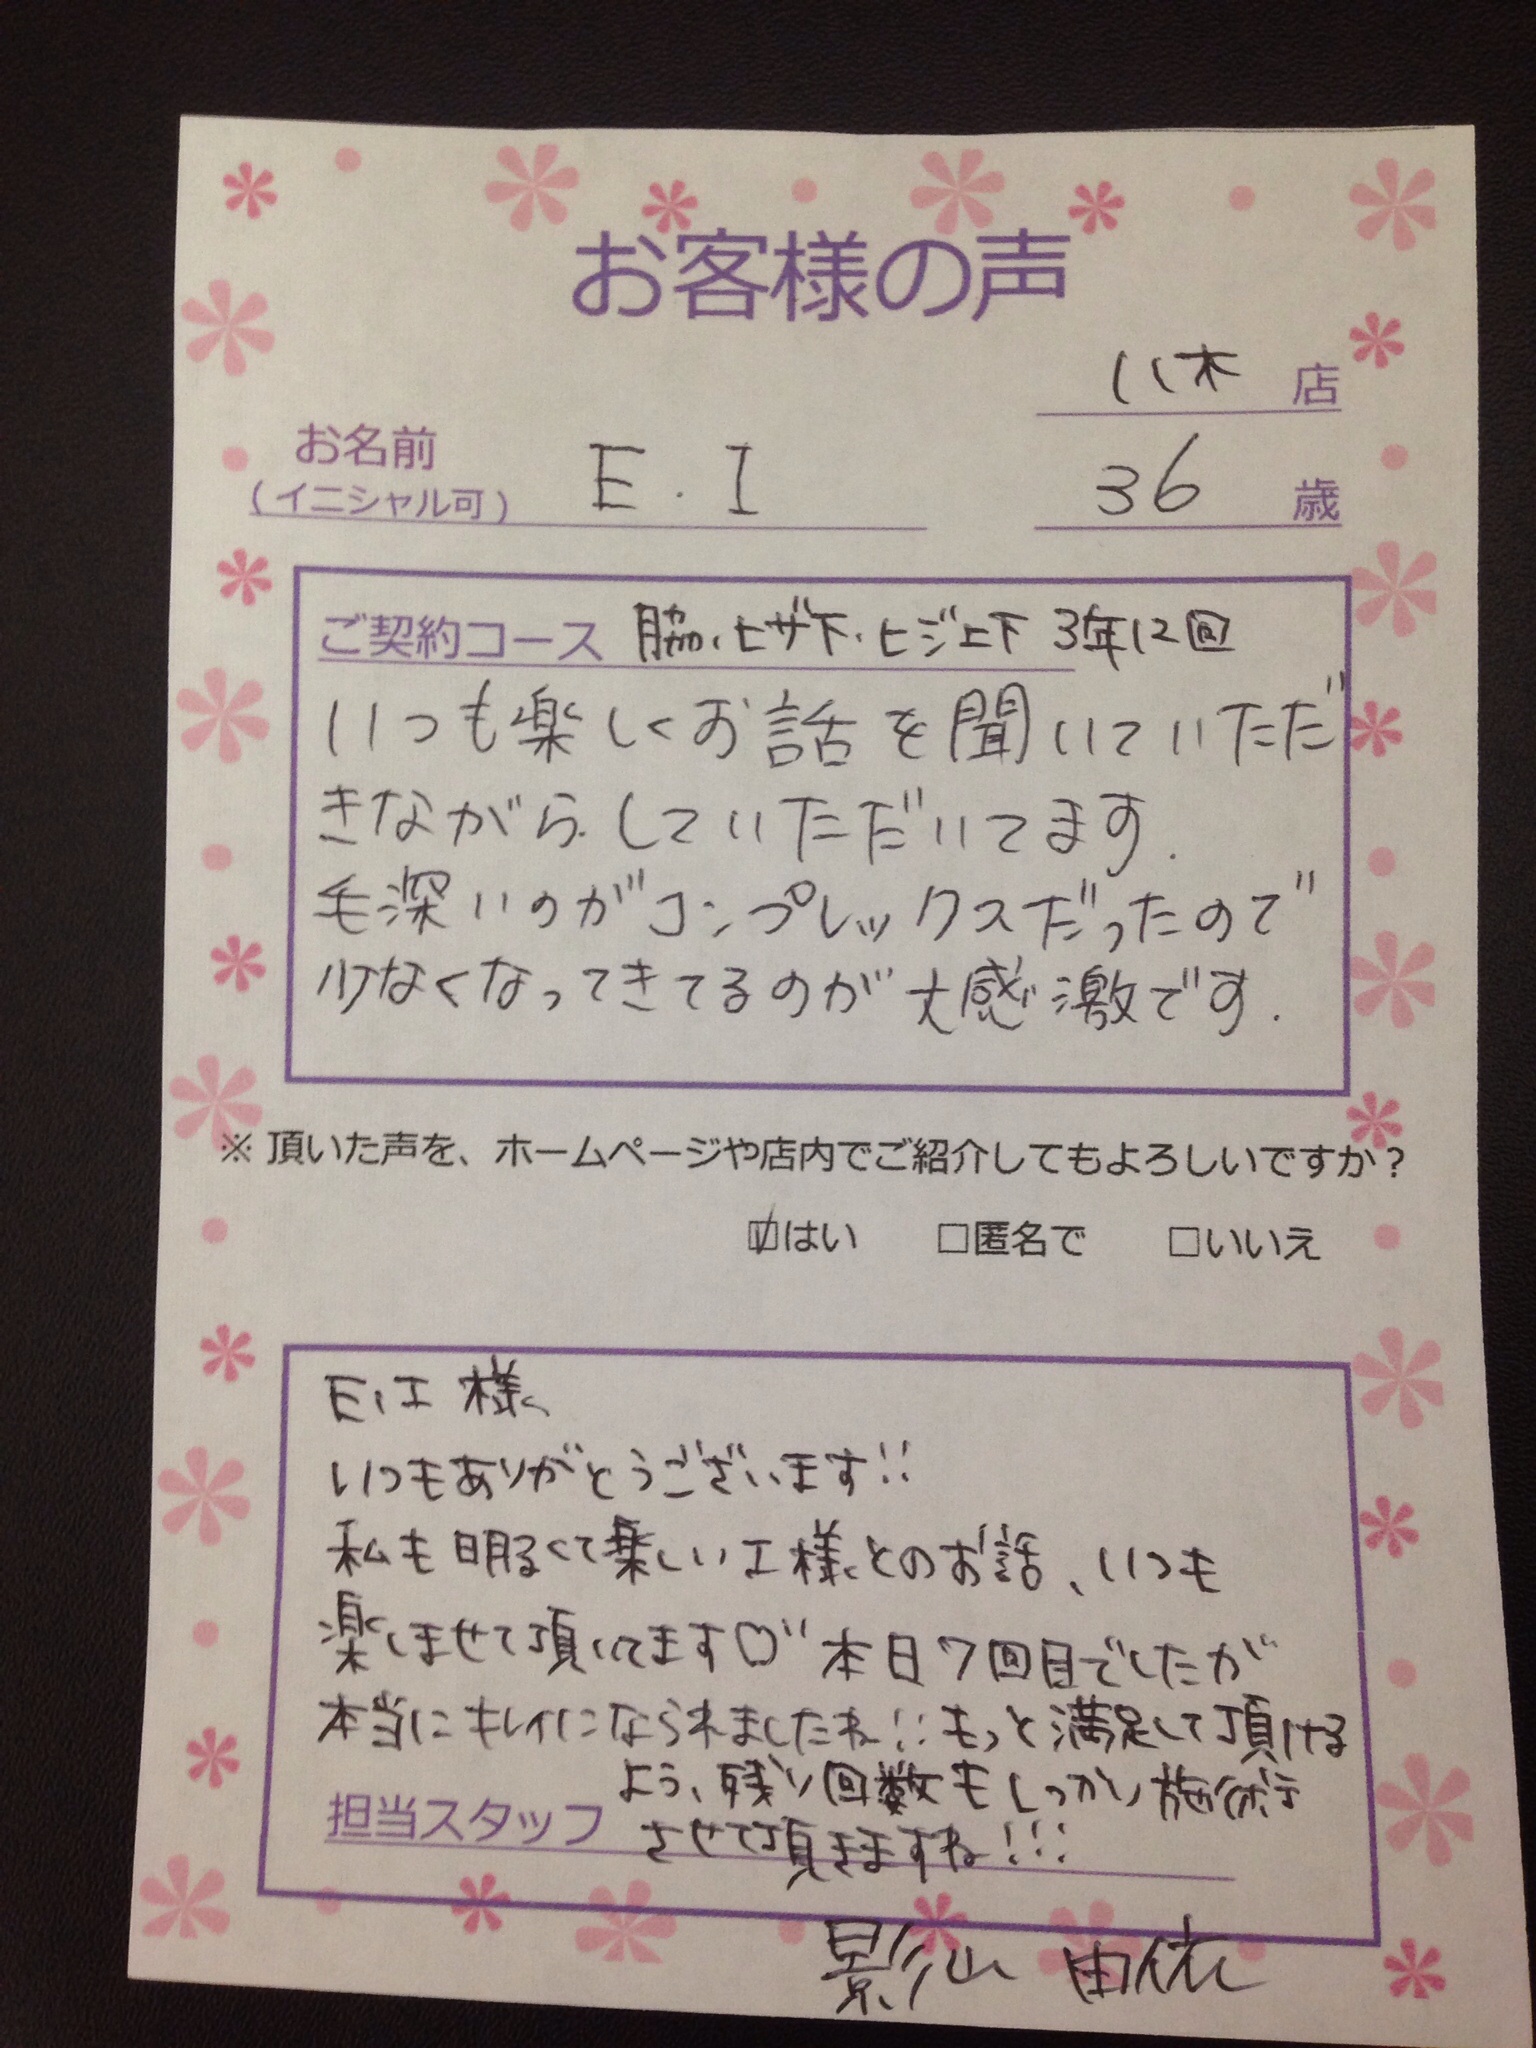 お客様の声
八木 店
お名前
(イニシャル可) E.I 36 歳
ご契約コース 脇、ヒザ下、ヒジ上下 3年12回
いつも楽しくお話を聞いていただ
きながら、していただいてます.
毛深いのがコンプレックスだったので
少なくなってきてるのが大感激です.
※ 頂いた声を、ホームページや店内でご紹介してもよろしいですか？
☑はい □匿名で □いいえ
E,I 様、
いつもありがとうございます!!
私も明るくて楽しいI様とのお話、いつも
楽しませて頂いてます♡" 本日7回目でしたが
本当にキレイになられましたね!! もっと満足して頂ける
よう、残り回数もしっかり施術
担当スタッフ させて頂きますね!!!
影山 由依